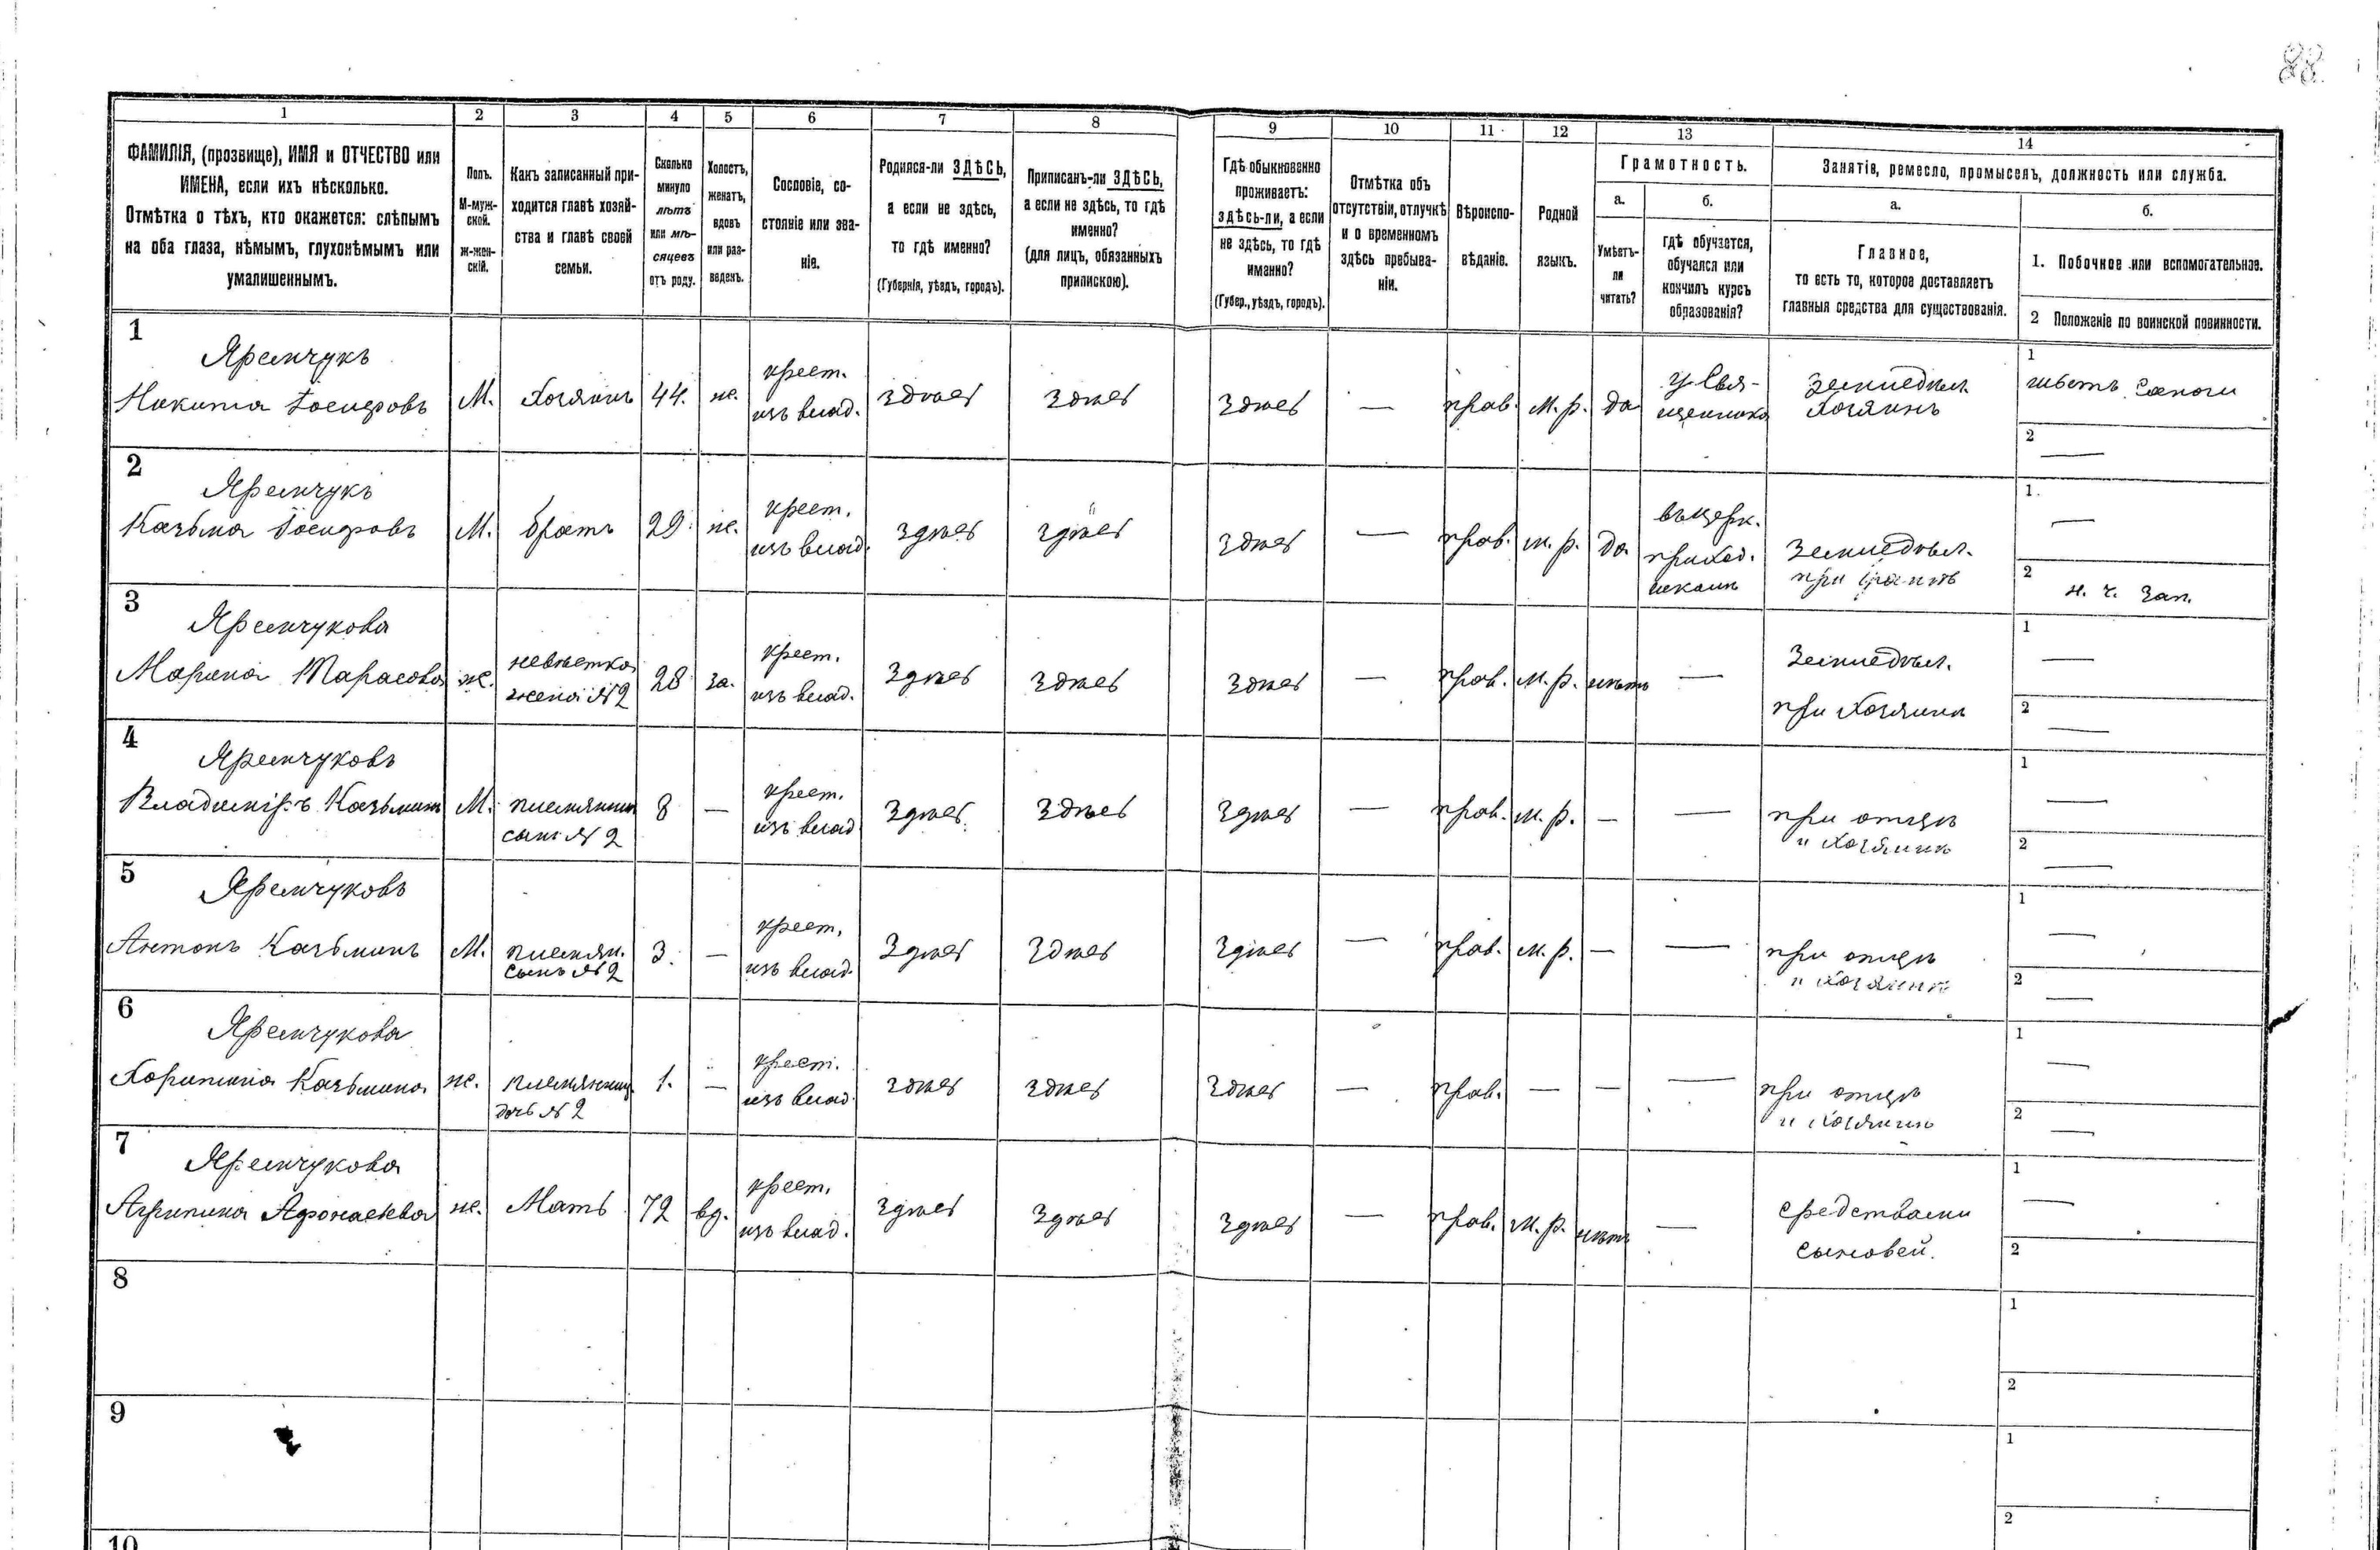 88.
1 2 3 4 5 6 7 8 9 10 11 12 13 14
ФАМИЛІЯ, (прозвище), ИМЯ и ОТЧЕСТВО или
ИМЕНА, если ихъ нѣсколько.
Отмѣтка о тѣхъ, кто окажется: слѣпымъ
на оба глаза, нѣмымъ, глухонѣмымъ или
умалишеннымъ.
Полъ.
М-муж-
ской.
Ж-жен-
скій.
Какъ записанный при-
ходится главѣ хозяй-
ства и главѣ своей
семьи.
Сколько
минуло
лѣтъ
или мѣ-
сяцевъ
отъ роду.
Холостъ,
женатъ,
вдовъ
или раз-
веденъ.
Сословіе, со-
стояніе или зва-
ніе.
Родился-ли ЗДѢСЬ,
а если не здѣсь,
то гдѣ именно?
(Губернія, уѣздъ, городъ).
Приписанъ-ли ЗДѢСЬ,
а если не здѣсь, то гдѣ
именно?
(для лицъ, обязанныхъ
припискою).
Гдѣ обыкновенно
проживаетъ:
здѣсь-ли, а если
не здѣсь, то гдѣ
именно?
(Губер., уѣздъ, городъ).
Отмѣтка объ
отсутствіи, отлучкѣ
и о временномъ
здѣсь пребыва-
ніи.
Вѣроиспо-
вѣданіе.
Родной
языкъ.
Грамотность.
а.
Умѣетъ-
ли
читать?
б.
гдѣ обучается,
обучался или
кончилъ курсъ
образованія?
Занятіе, ремесло, промыселъ, должность или служба.
а.
Главное,
то есть то, которое доставляетъ
главныя средства для существованія.
б.
1. Побочное или вспомогательное.
2 Положеніе по воинской повинности.
1
Яремчукъ
Никита Іосифовъ М. Хозяинъ 44. же. крест. изъ влад. здѣсь здѣсь здѣсь — прав. м. р. да у Свя-
щенника земледѣл. Хозяинъ
1 шьетъ Сапоги
2 —
2
Яремчукъ
Казьма Іосифовъ М. братъ 29. же. крест. изъ влад. здѣсь здѣсь здѣсь — прав. м. р. да въ церк.
приход.
школѣ земледѣл. при братѣ
1. —
2 н. ч. зап.
3
Яремчукова
Марина Тарасова же. невѣстка жена № 2 28 за. крест. изъ влад. здѣсь здѣсь здѣсь — прав. м. р. нѣтъ — земледѣл. при хозяинѣ
1 —
2 —
4
Яремчуковъ
Владиміръ Казьминъ М. племянникъ сынъ № 2 8 — крест. изъ влад здѣсь здѣсь здѣсь — прав. м. р. — — при отцѣ и хозяинѣ
1 —
2 —
5
Яремчуковъ
Антонъ Казьминъ М. племян. сынъ № 2 3. — крест. изъ влад. здѣсь здѣсь здѣсь — прав. м. р. — — при отцѣ и хозяинѣ
1 —
2 —
6
Яремчукова
Харитина Казьмина же. дочь № 2 1. — крест. изъ влад. здѣсь здѣсь здѣсь — прав. — — — при отцѣ и хозяинѣ
1 —
2 —
7
Яремчукова
Агрипина Афонасьева же. Мать 72 вд. крест. изъ влад. здѣсь здѣсь здѣсь — прав. м. р. нѣтъ — средствами сыновей.
1 —
2
8
1
2
9
1
2
10